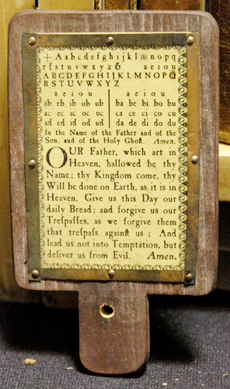 + A a b c d e f g h i j k l m n o p q
r ſ s t u v w x y z & a e i o u
A B C D E F G H I J K L M N O P Q
R S T U V W X Y Z
a e i o u | a e i o u
ab eb ib ob ub | ba be bi bo bu
ac ec ic oc uc | ca ce ci co cu
ad ed id od ud | da de di do du
In the Name of the Father and of the
Son, and of the Holy Ghoſt. Amen.
OUR Father, which art in
Heaven, hallowed be thy
Name; thy Kingdom come, thy
Will be done on Earth, as it is in
Heaven. Give us this Day our
daily Bread; and forgive us our
Treſpaſſes, as we forgive them
that treſpaſs againſt us: And
lead us not into Temptation, but
deliver us from Evil. Amen.